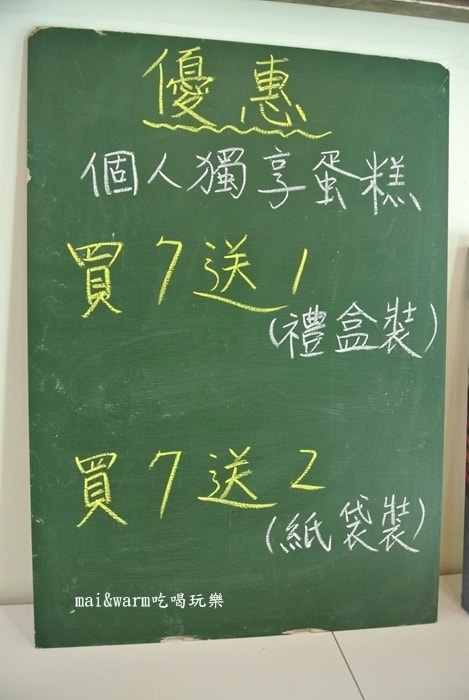 優惠
個人獨享蛋糕
買7送1
(禮盒裝)
買7送2
(紙袋裝)
mai&warm吃喝玩樂